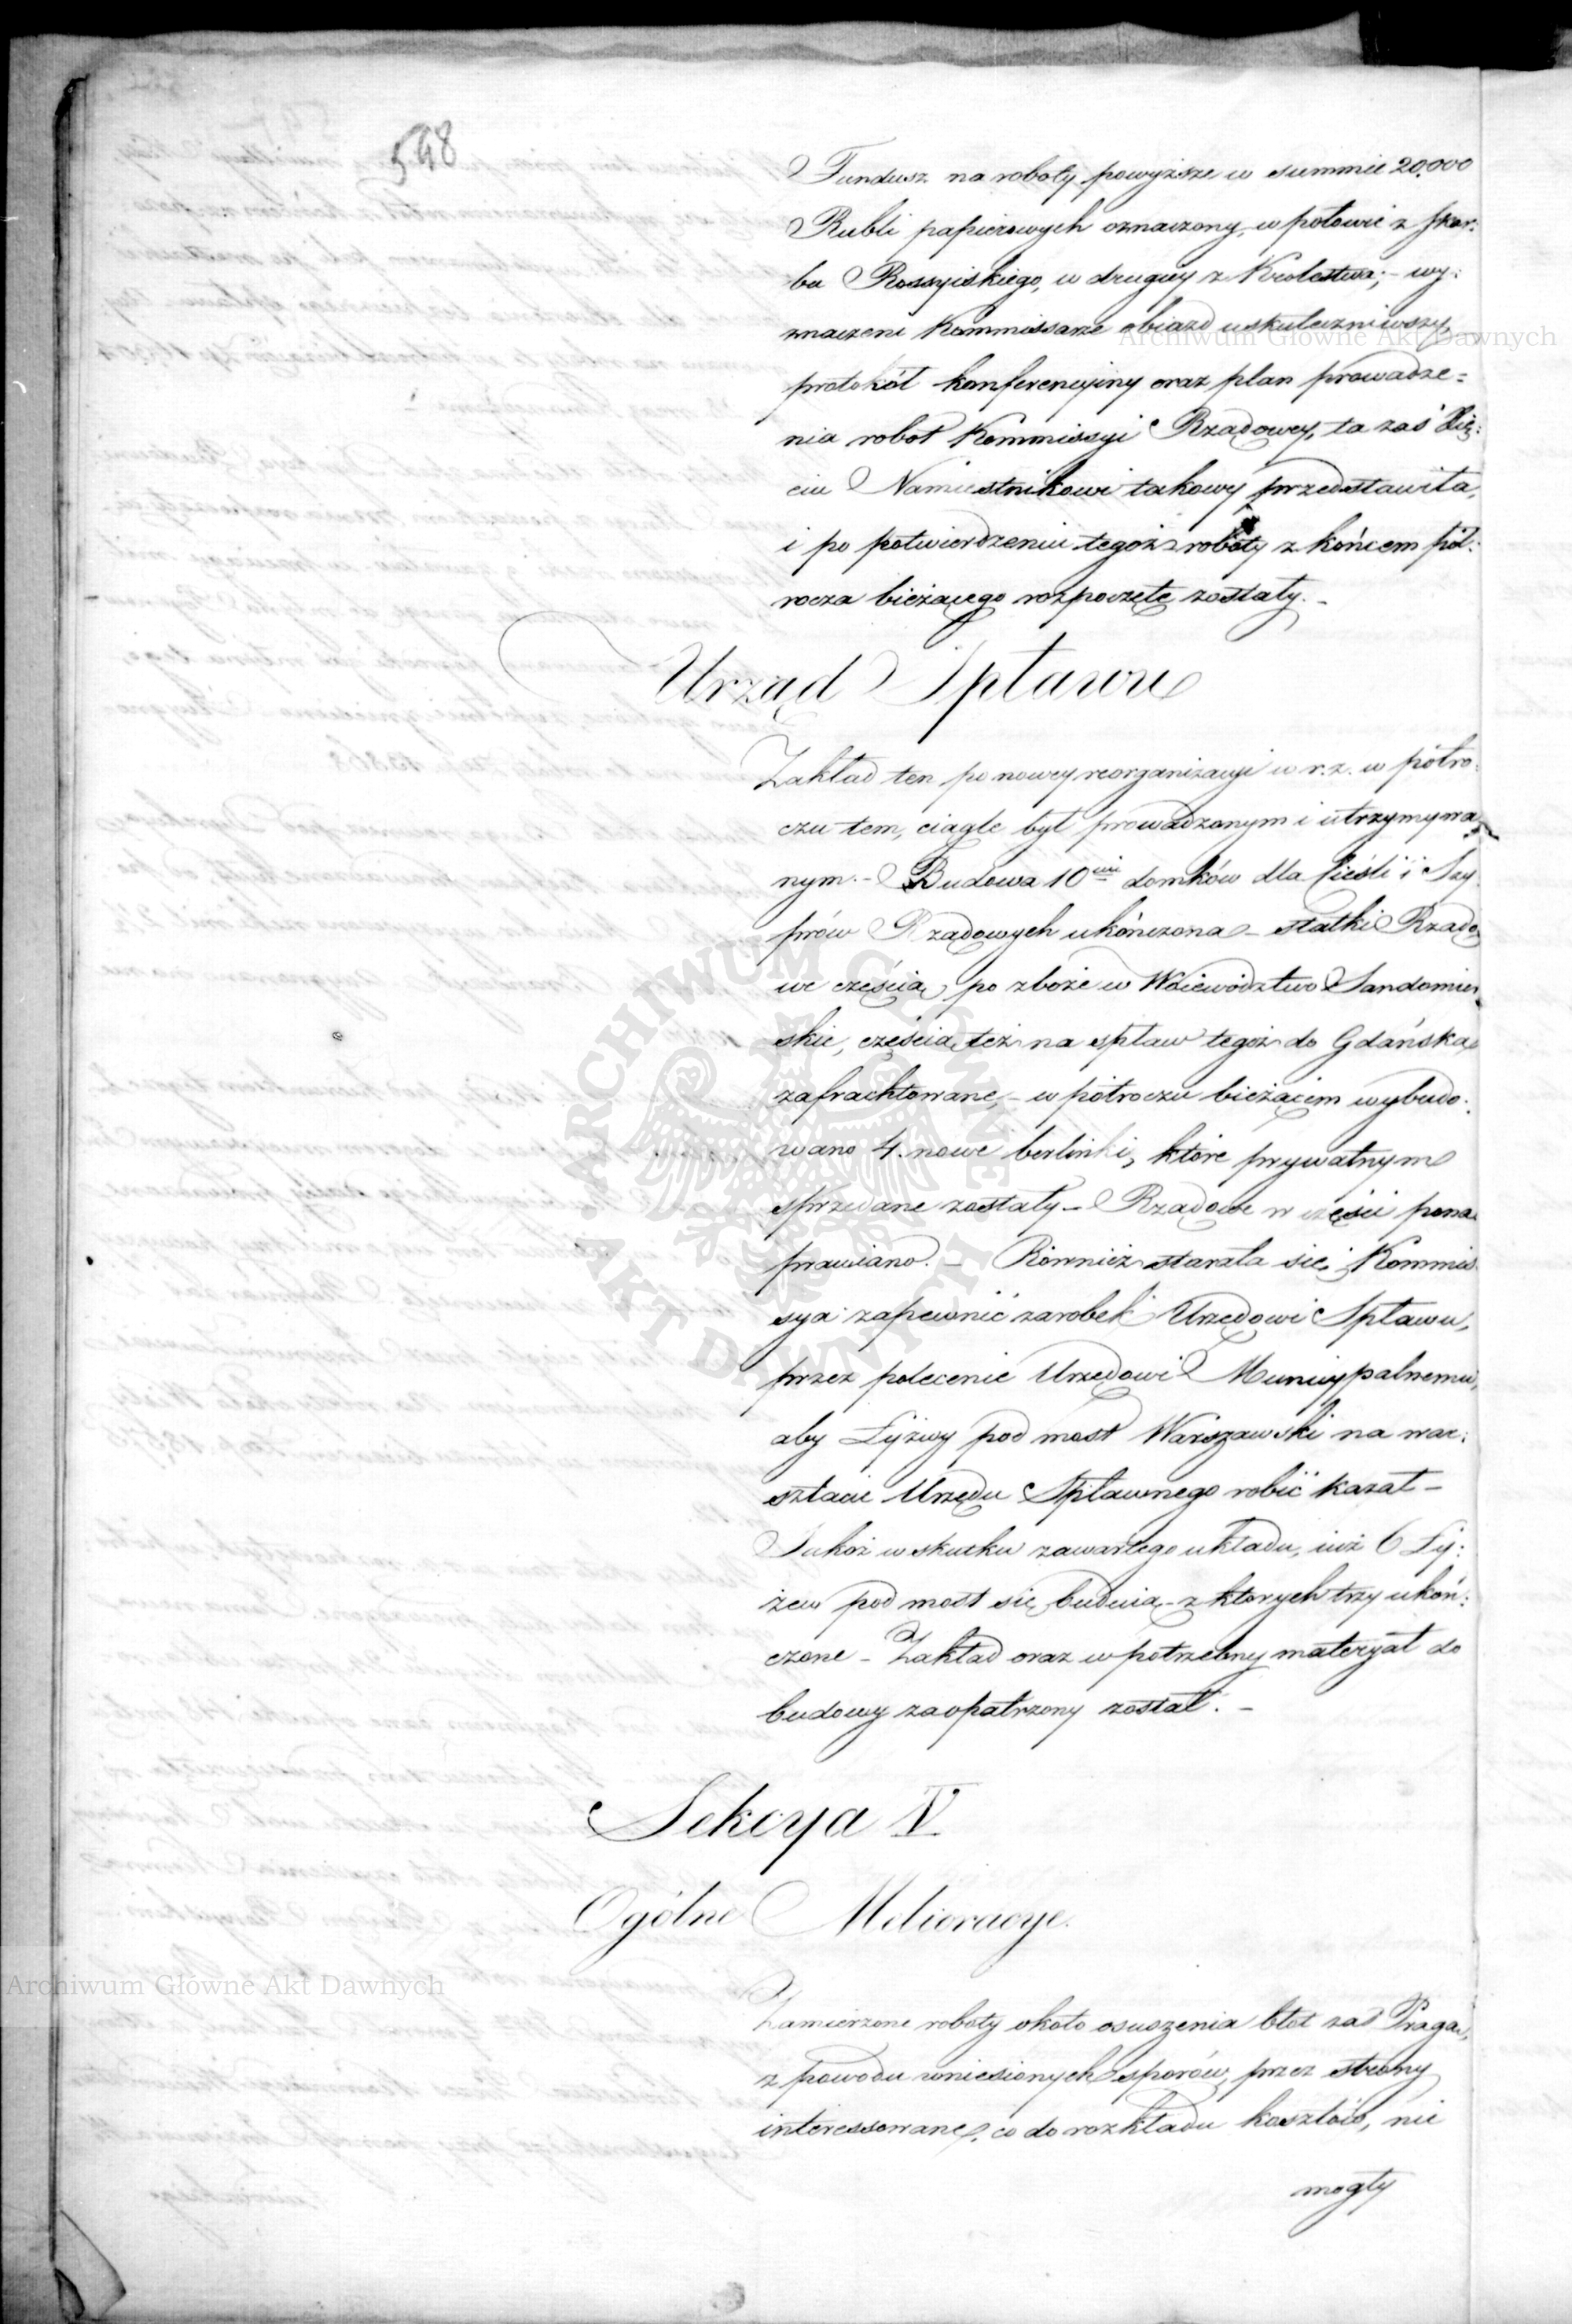 548
Fundusz na roboty powyższe w summie 20,000
Rubli papierowych oznaczony, w połowie z skar:
bu Rossyiskiego, w drugiey z Krolestwa; – wy:
znaczeni Kommissarze obiazd uskuteczniwszy,
protokół konferencyiny oraz plan prowadze=
nia robot Kommissyi Rządowey, ta zaś Xię:
ciu Namiestnikowi takowy przedstawiła,
i po potwierdzeniu tegoż roboty z końcem pół:
rocza bieżącego rozpoczęte zostały. –
Urząd Spławu
Zakład ten po nowey reorganizacyi w r. z. w półro:
czu tem, ciągle był prowadzonym i utrzymywa
nym. – Budowa 10ciu domków dla Cieśli i Szy
prów Rządowych ukończona – statki Rządo
we częścią po zboże w Woiewództwo Sandomier
skie, częścią też na spław tegoż do Gdańska
zafrachtowane, – w półroczu bieżącem wybudo:
wano 4. nowe berlinki, które prywatnym
sprzedane zostały – Rządowe w części pona
prawiano. – Również starała się Kommis
sya zapewnić zarobek Urzędowi Spławu,
przez polecenie Urzędowi Municypalnemu,
aby Łyżwy pod most Warszawski na war:
sztacie Urzędu Spławnego robić kazał –
Jakoż w skutku zawartego układu, iuż 6 Ły:
żew pod most się buduią – z ktorych trzy ukoń:
czone – Zakład oraz w potrzebny materyał do
budowy zaopatrzony został. –
Sekcya V.
Ogólne Melioracye.
Zamierzone roboty około osuszenia błot za Pragą,
z powodu wniesionych sporów, przez strony
interessowane, co do rozkładu kosztów, nie
mogły
Archiwum Główne Akt Dawnych
Archiwum Główne Akt Dawnych
ARCHIWUM GŁÓWNE AKT DAWNYCH